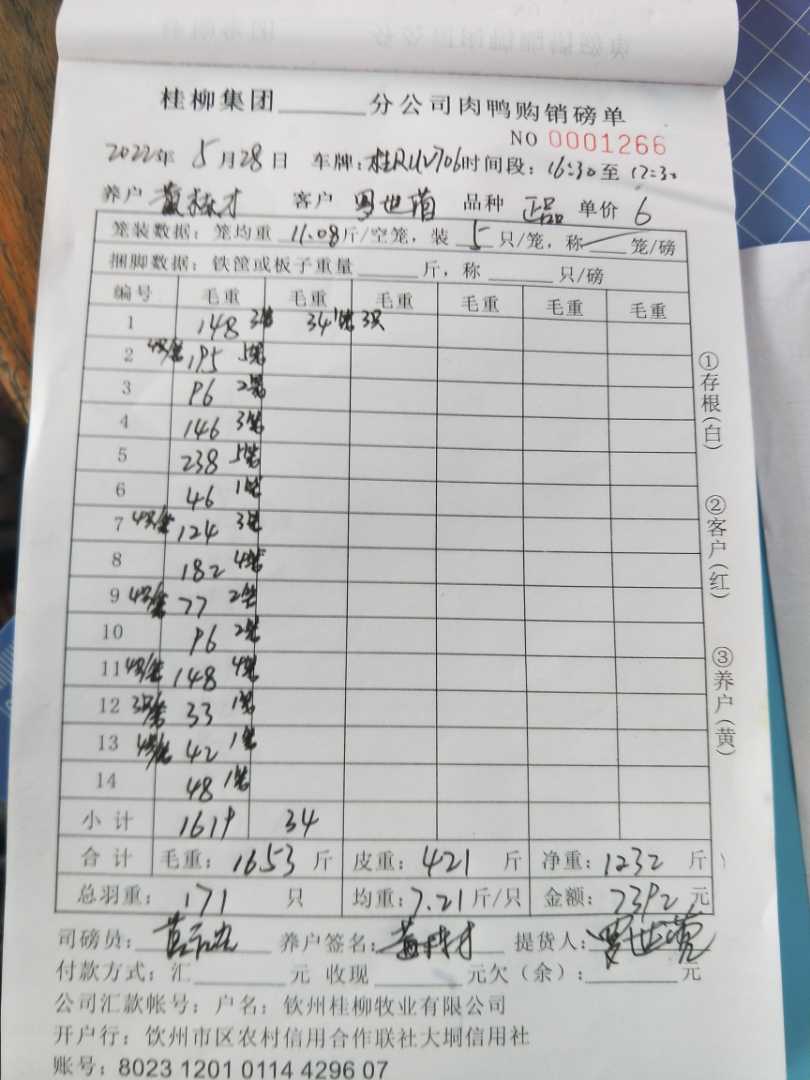 桂柳集团______分公司肉鸭购销磅单
NO 0001266
2022年 5月28日 车牌:桂RUV706时间段:16:30至17:30
养户 才 客户 罗世 品种 正品 单价 6
笼装数据:笼均重 11.08斤/空笼,装 5 只/笼,称 笼/磅
捆脚数据:铁筐或板子重量______斤,称______只/磅
编号 毛重 毛重 毛重 毛重 毛重 毛重
1 148 3笼 34 1笼 3只
2 4只/笼 195 5笼
3 96 2笼
4 146 3笼
5 238 5笼
6 46 1笼
7 4只/笼 124 3笼
8 182 4笼
9 4只/笼 77 2笼
10 96 2笼
11 4只/笼 148 4笼
12 3只/笼 33 1笼
13 4只/笼 42 1笼
14 48 1笼
小计 1619 34
合计 毛重:1653斤 皮重:421斤 净重:1232斤
总羽重:171只 均重:7.21斤/只 金额:7392元
司磅员: 养户签名: 才 提货人:罗世
付款方式:汇______元 收现______元欠(余):______元
公司汇款帐号:户名:钦州桂柳牧业有限公司
开户行:钦州市区农村信用合作联社大垌信用社
账号:8023 1201 0114 4296 07
①存根(白)
②客户(红)
③养户(黄)